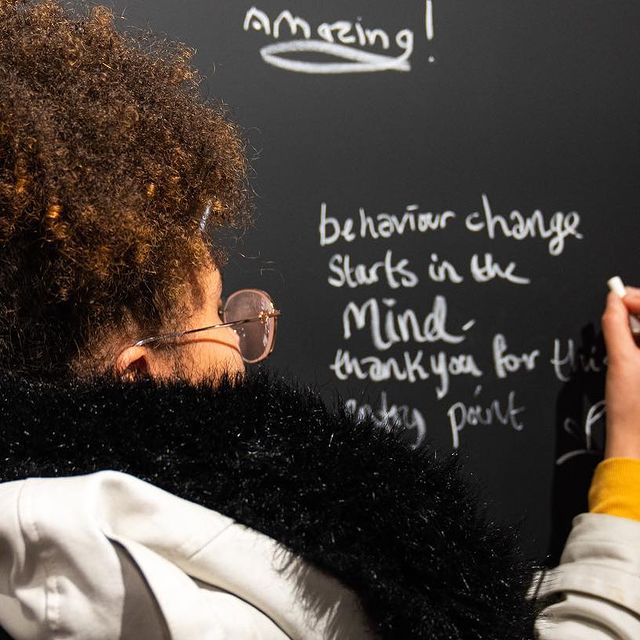 Amazing!
behaviour change
starts in the
Mind.
thankyou for this
entry point